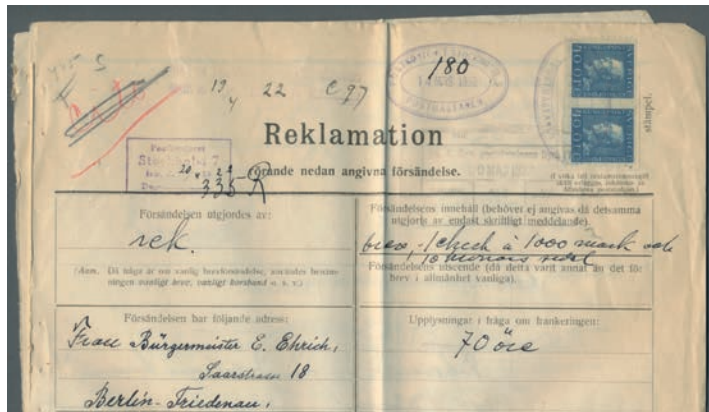 180
19 22 C 97
Reklamation
Stockholm 7
335 R
rörande nedan angivna försändelse.
stämpel.
Försändelsen utgjordes av:
rek.
(Anm. Då fråga är om vanlig brevförsändelse, användes benämningen vanligt brev, vanligt korsband o. s. v.)
Försändelsens innehåll (behöver ej angivas då detsamma
utgjorts av endast skriftligt meddelande).
brev, 1 check à 1000 mark och
Försändelsens utseende (då detta varit annat än det för
brev i allmänhet vanliga).
Försändelsen har följande adress:
Frau Bürgermeister E. Ehrich,
Saarstrasse 18
Berlin-Friedenau,
Upplysningar i fråga om frankeringen:
70 öre